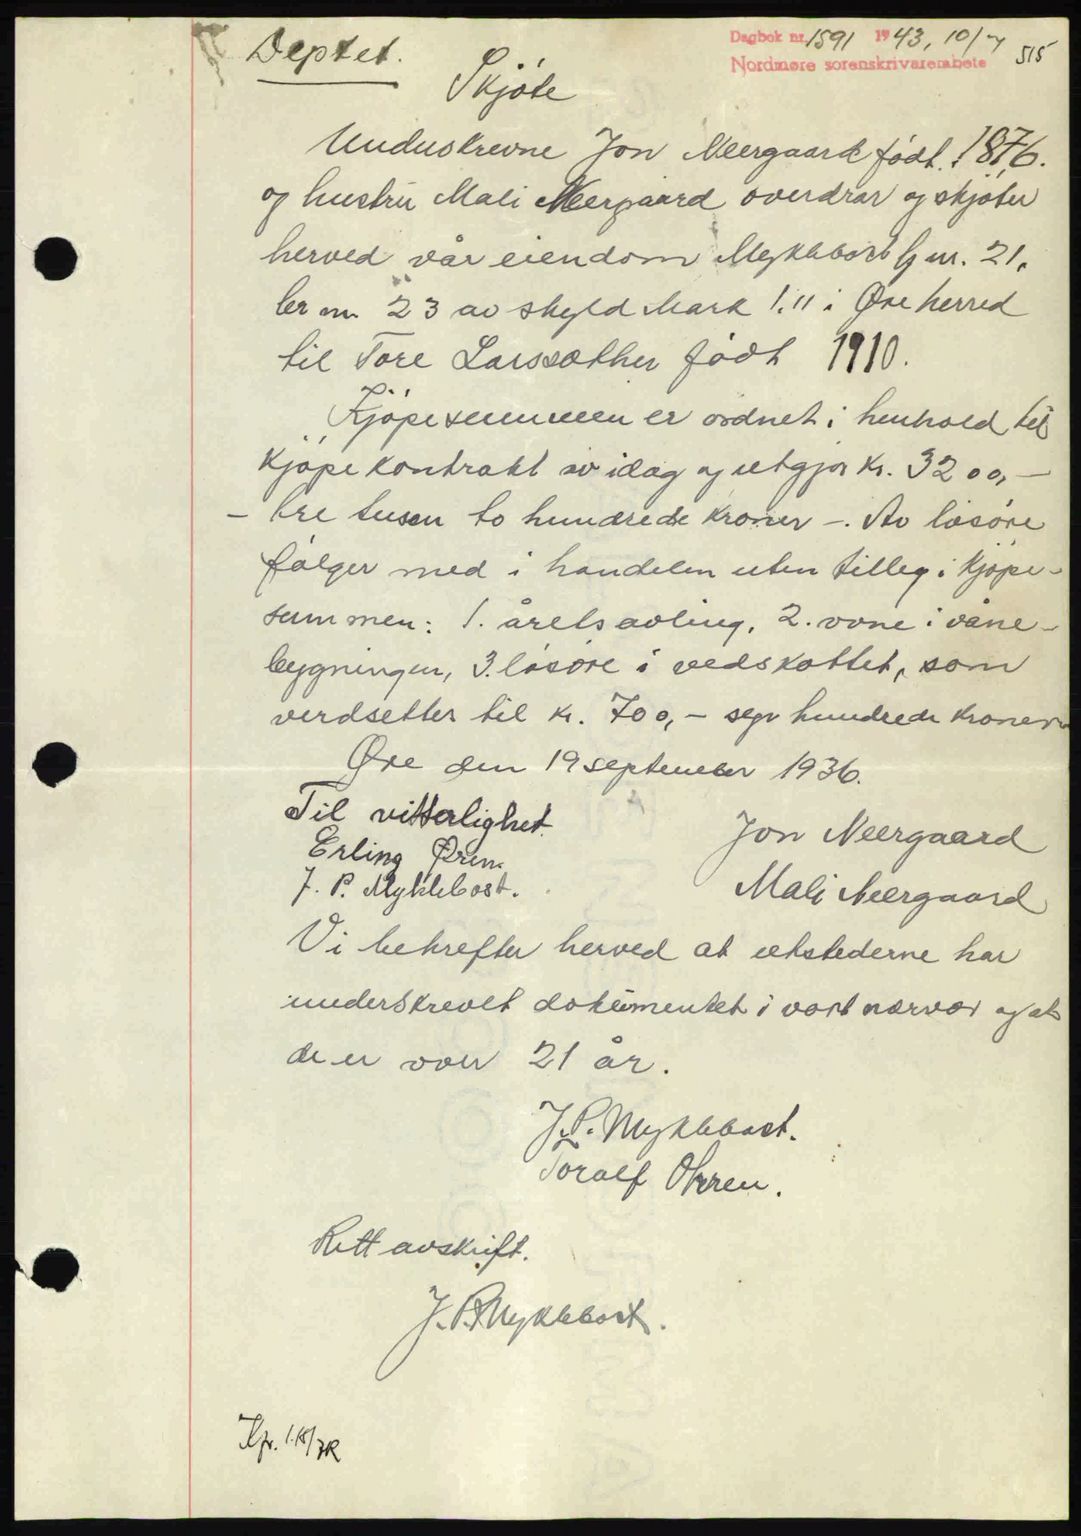 Deptet.
Dagbok nr. 1591 1943, 10/7
Nordmøre sorenskriverembete
515
Skjøte
Underskrevne Jon Neergaard født 1876.
og hustru Mali Neergaard overdrar og skjøter
herved vår eiendom Myklebost g nr. 21,
br nr. 23 av skyld Mark 1.11 i Øre herred
til Tore Larssæther født 1910.
Kjøpesummen er ordnet i henhold til
kjøpekontrakt av idag og utgjør kr. 3200,-
- tre tusen to hundrede kroner -. Av løsøre
følger med i handelen uten tillegg i kjøpe-
summen: 1. årets avling, 2. ovne i våne-
bygningen, 3. løsøre i vedskottet, som
verdsettes til kr. 700,- syv hundrede kroner
Øre den 19 september 1936.
Til vitterlighet
Erling Øren.
J. P. Myklebost.
Jon Neergaard
Mali Neergaard
Vi bekrefter herved at utstederne har
underskrevet dokumentet i vort nærvær og at
de er over 21 år.
J. P. Myklebost.
Toralf Ohren.
Rett avskrift.
J. P. Myklebost.